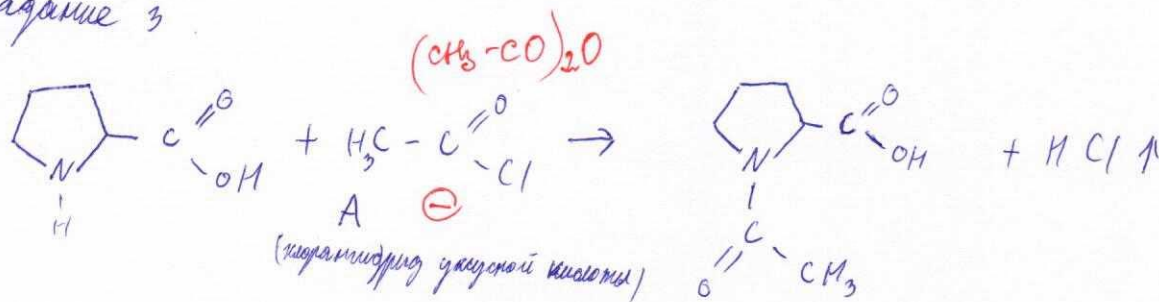 адание 3
(CH₃-CO)₂O
N H C O OH + H₃C - C O Cl → N C O OH C O CH₃ + HCl ↑
A ⊖
(хлорангидрид уксусной кислоты)